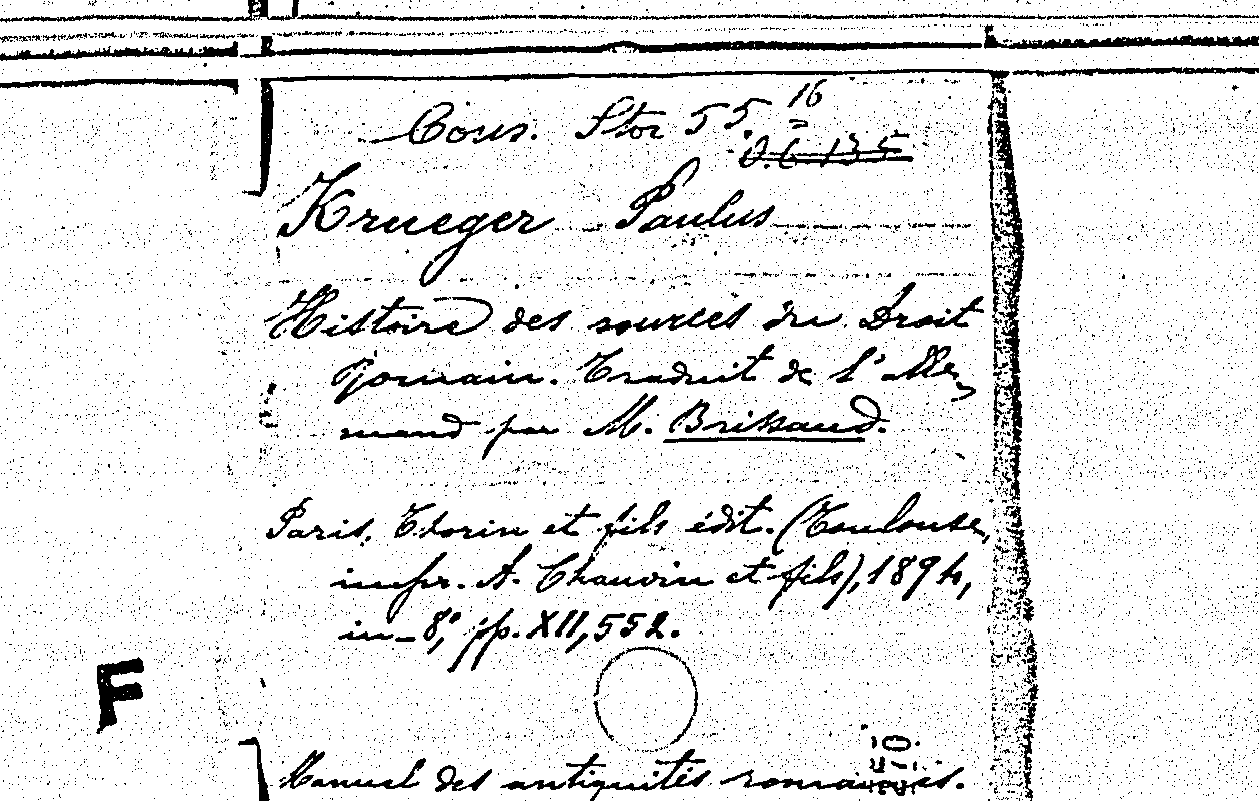 Cons. Stor 55. 16
O.6.135
Krueger Paulus
Histoire des sources du Droit
Romain. Traduit de l'alle,
mand par M. Brissaud.
Paris, Thorin et fils édit. (Toulouse,
impr. A. Chauvin et fils), 1894,
in-8,° pp. XII, 552.
F
Manuel des antiquités romaines.